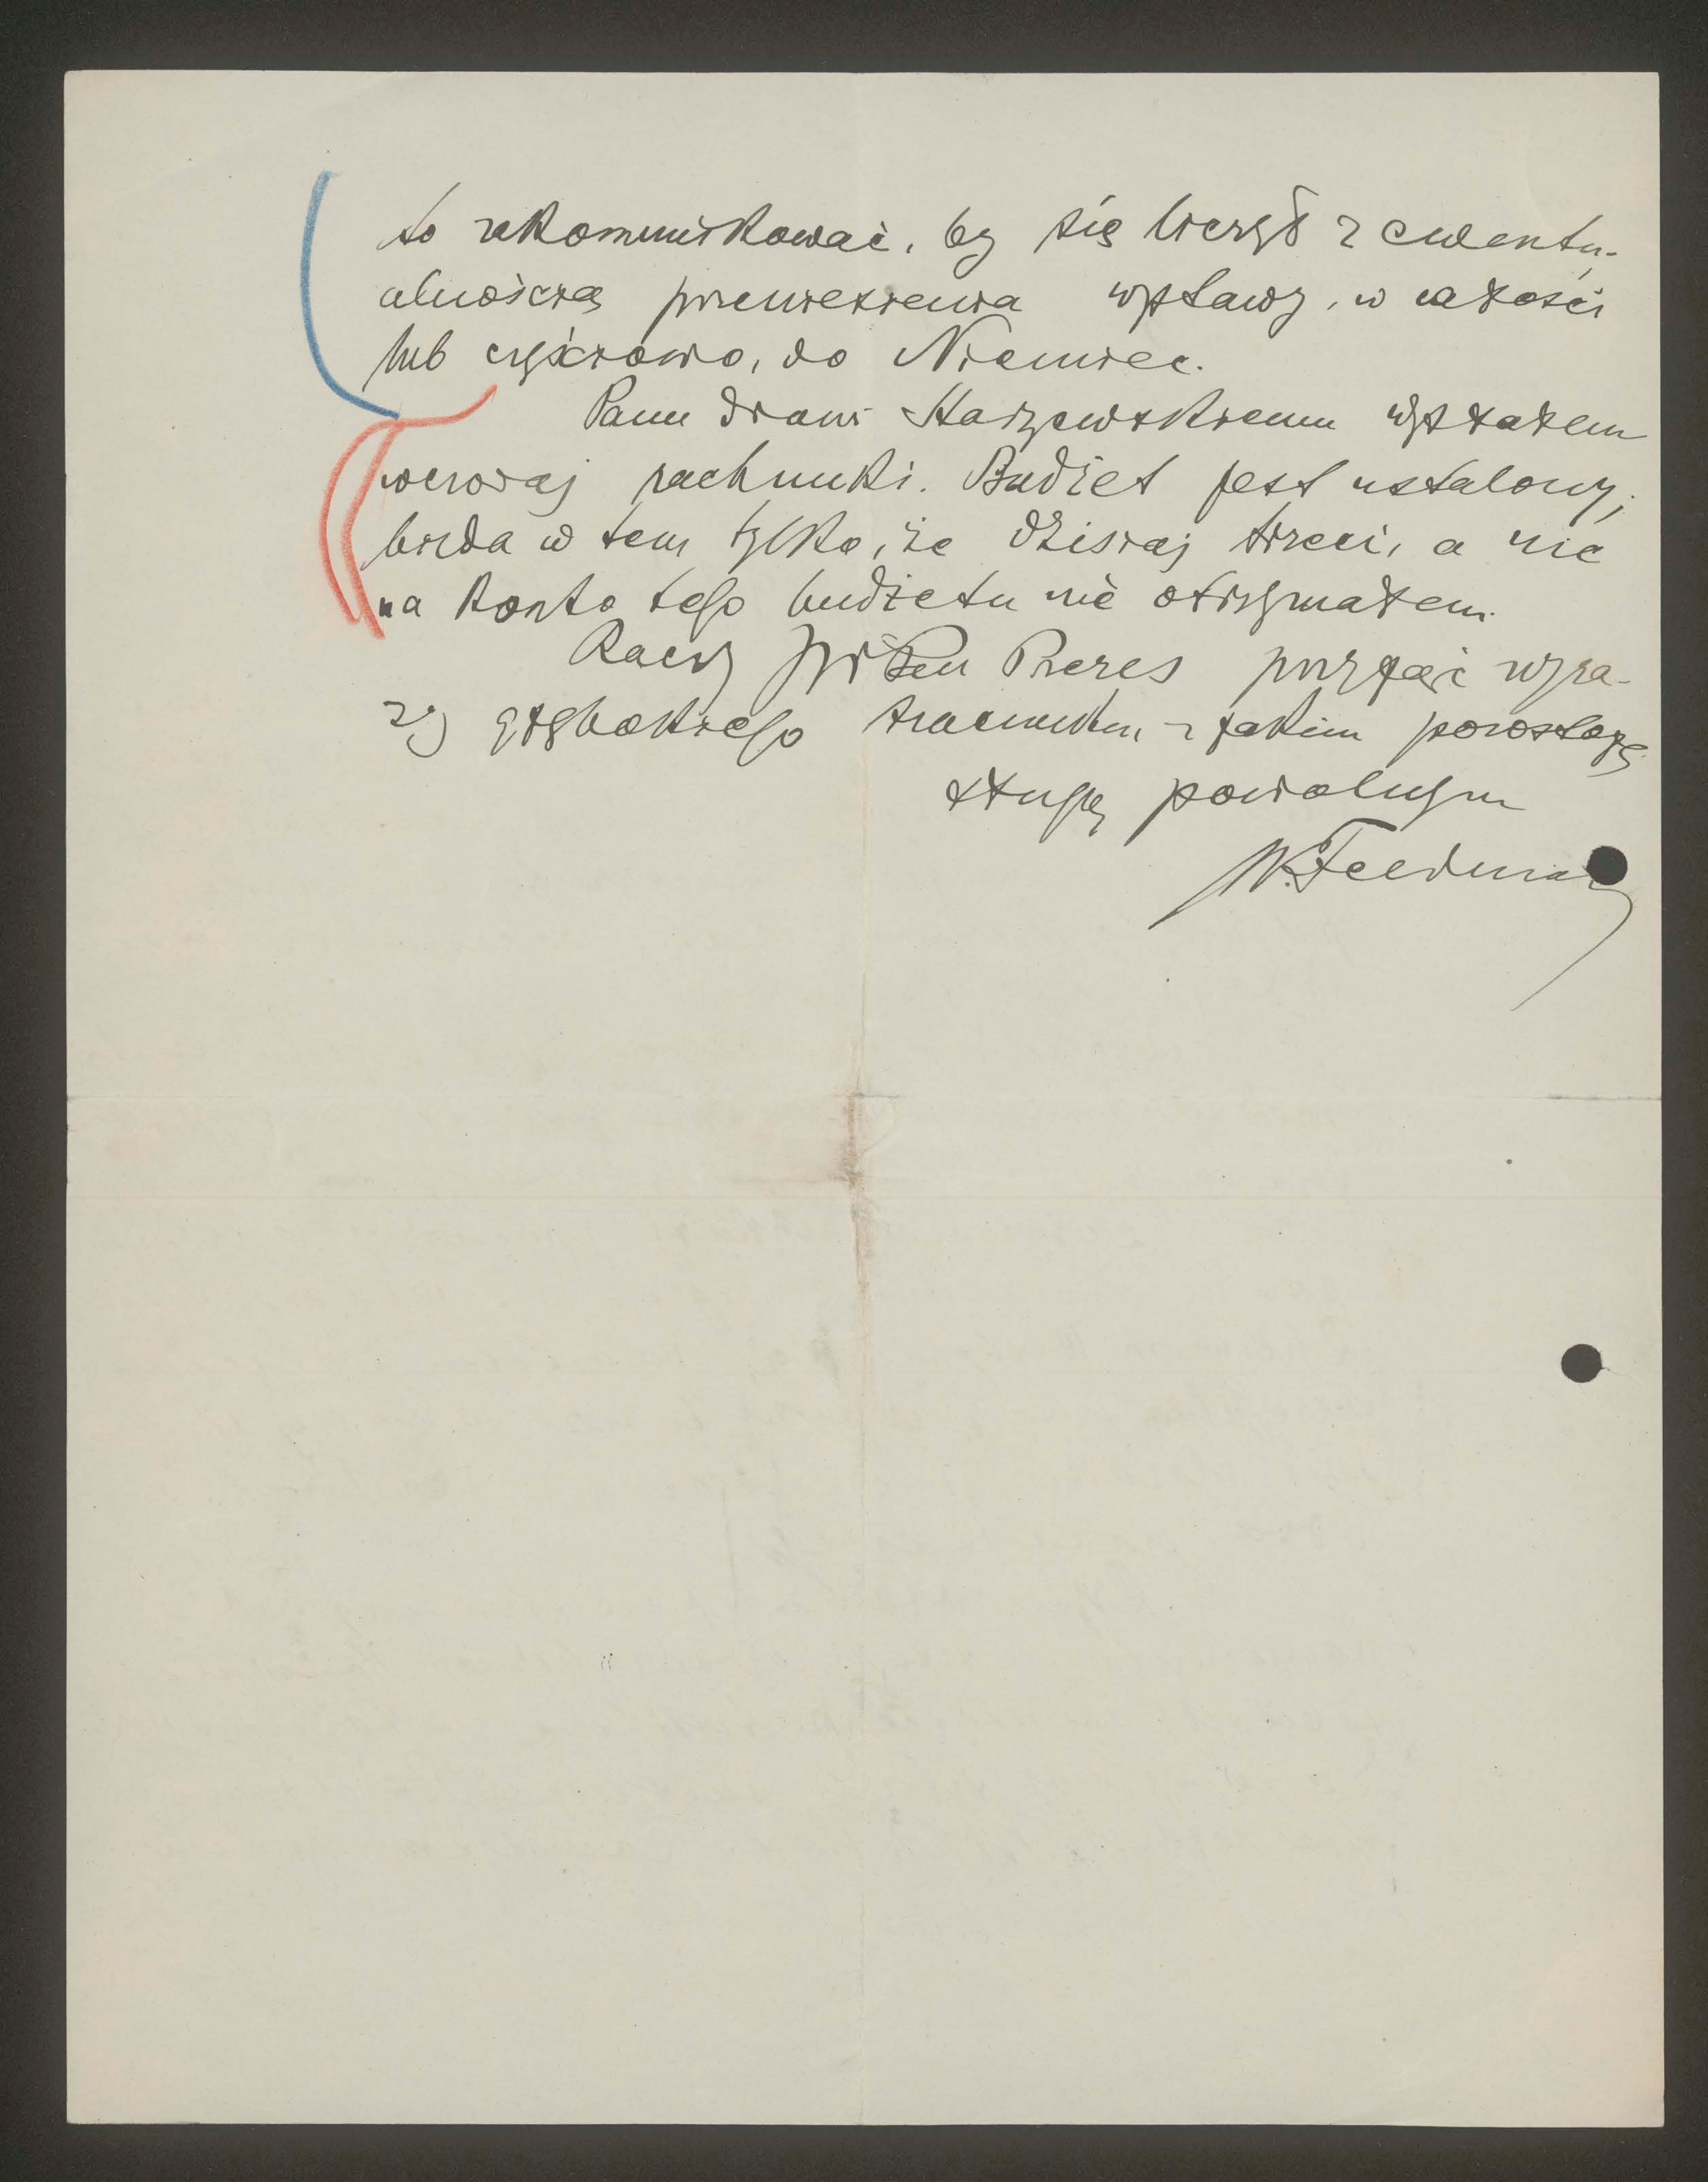 to zakomunikować, by się liczył z ewentu-
alnością przewiezienia wystawy, w całości
lub częściowo, do Niemiec.
Panu drowi Starzewskiemu wysłałem
wczoraj rachunki. Budżet jest ustalony;
bieda w tem tylko, że dzisiaj trzeci, a nic
na konto tego budżetu nie otrzymałem.
Raczy Pan Prezes przyjąć wyra-
zy głębokiego szacunku z jakim pozostaję
sługą powolnym
W. Feldman